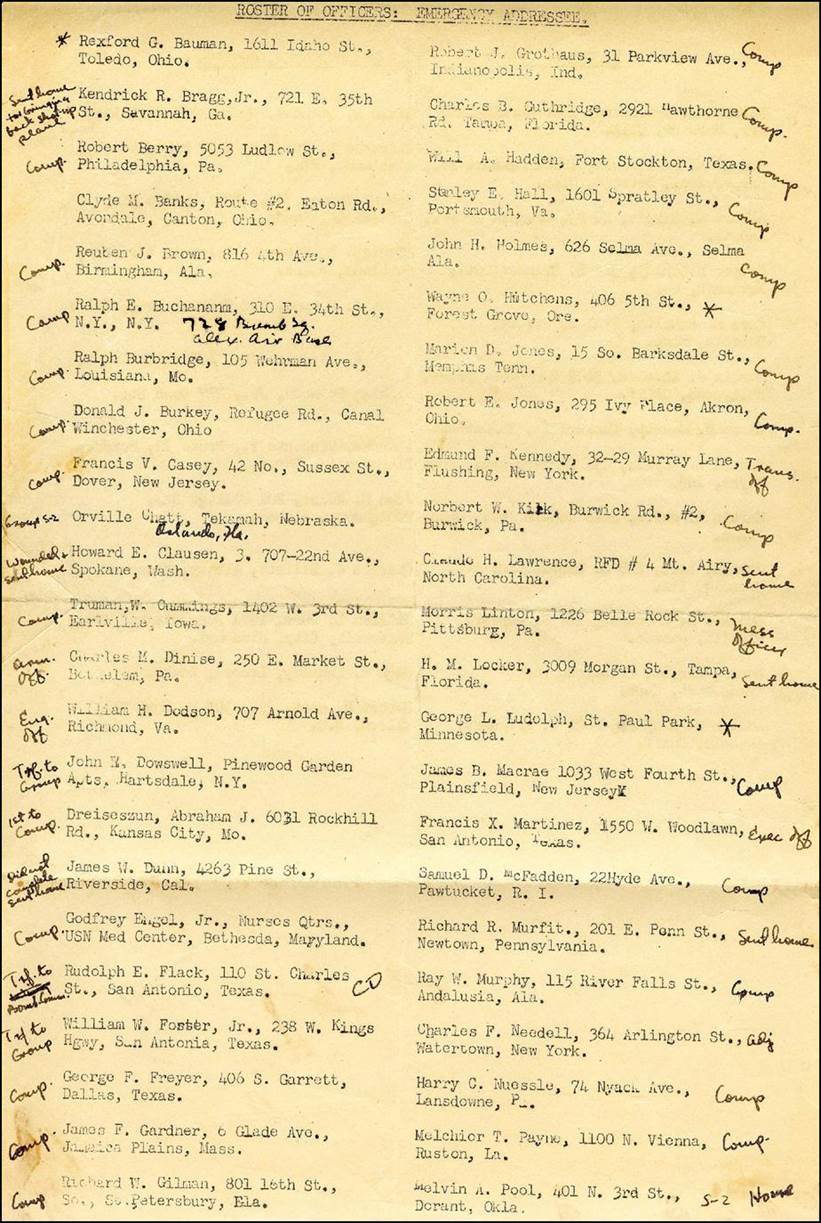 ROSTER OF OFFICERS: EMERGENCY ADDRESSEE.
* Rexford G. Bauman, 1611 Idaho St.,
Toledo, Ohio.
Sent home for bringing back shot up plane
Kendrick R. Bragg,Jr., 721 E. 35th
St., Savannah, Ga.
Comp.
Robert Berry, 5053 Ludlow St.,
Philadelphia, Pa.
Clyde M. Banks, Route #2. Eaton Rd.,
Avondale, Canton, Ohio.
Comp.
Reuben J. Brown, 816 4th Ave.,
Birmingham, Ala.
Comp
Ralph E. Buchananm, 310 E. 34th St.,
N.Y., N.Y. 728 Bomb Sq.
Alex. Air Base
Comp.
Ralph Burbridge, 105 Wehrman Ave.,
Louisiana, Mo.
Comp.
Donald J. Burkey, Refugee Rd., Canal
Winchester, Ohio
Comp.
Francis V. Casey, 42 No., Sussex St.,
Dover, New Jersey.
Group S-2
Orville Chatt, Tekamah, Nebraska.
Orlando, Fla.
Wounded & sent home
Howard E. Clausen, 3. 707-22nd Ave.,
Spokane, Wash.
Comp.
Truman,W. Cummings, 1402 W. 3rd St.,
Earlville, Iowa.
Arm. Off.
Charles M. Dinise, 250 E. Market St.,
Bethelem, Pa.
Eng. Off
William H. Dodson, 707 Arnold Ave.,
Richmond, Va.
Trf. to Group
John Dowswell, Pinewood Garden
Apts. Hartsdale, N.Y.
1st to Comp.
Dreiseszun, Abraham J. 6031 Rockhill
Rd., Kansas City, Mo.
Did not complete sent home
James W. Dunn, 4263 Pine St.,
Riverside, Cal.
Comp.
Godfrey Engel, Jr., Nurses Qtrs.,
USN Med Center, Bethesda, Maryland.
Trf. to Bomb Comm.
Rudolph E. Flack, 110 St. Charles
St., San Antonio, Texas. CO
Trf to Group
William W. Foster, Jr., 238 W. Kings
Hgwy, San Antonia, Texas.
Comp.
George F. Freyer, 406 S. Garrett,
Dallas, Texas.
Comp.
James F. Gardner, 6 Glade Ave.,
Jamaica Plains, Mass.
Comp
Richard W. Gilman, 801 16th St.,
So., St.Petersbury, Ela.
Robert J. Grothaus, 31 Parkview Ave., Comp
Indianopolis, Ind.
Charles B. Guthridge, 2921 Hawthorne Comp.
Rd. Tampa, Florida.
Will A. Hadden, Fort Stockton, Texas. Comp
Stanley E. Hall, 1601 Spratley St., Comp
Portsmouth, Va.
John H. Holmes, 626 Selma Ave., Selma
Ala. Comp
Wayne O. Hutchens, 406 5th St., *
Forest Grove, Ore.
Marion D. Jones, 15 So. Barksdale St., Comp
Memphas Tenn.
Robert E. Jones, 295 Ivy Place, Akron, Comp.
Ohio.
Edmund F. Kennedy, 32-29 Murray Lane, Trans. Off
Flushing, New York.
Norbert W. Kilk, Burwick Rd., #2, Comp
Burwick, Pa.
Claude H. Lawrence, RFD # 4 Mt. Airy, Sent home
North Carolina.
Morris Linton, 1226 Belle Rock St., Mess Officer
Pittsburg, Pa.
H. M. Locker, 3009 Morgan St., Tampa, Sent home
Florida.
George L. Ludolph, St. Paul Park, *
Minnesota.
James B. Macrae 1033 West Fourth St., Comp
Plainsfield, New Jersey
Francis X. Martinez, 1550 W. Woodlawn, Exec Off
San Antonio, Texas.
Samuel D. McFadden, 22Hyde Ave., Comp
Pawtucket, R. I.
Richard R. Murfit., 201 E. Penn St., Sent home
Newtown, Pennsylvania.
Ray W. Murphy, 115 River Falls St., Comp
Andalusia, Ala.
Charles F. Needell, 364 Arlington St., Adj
Watertown, New York.
Harry C. Nuessle, 74 Nyack Ave., Comp
Lansdowne, Pa.
Melchior T. Payne, 1100 N. Vienna, Comp.
Ruston, La.
Melvin A. Pool, 401 N. 3rd St., S-2 Home
Dorant, Okla.